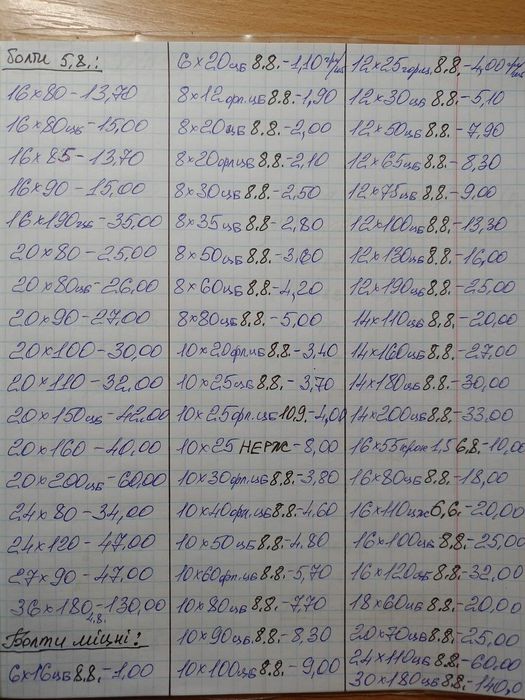 Болти 5,8.:
16×80-13,70
16×80цб-15,00
16×85-13,70
16×90-15,00
16×190цб-35,00
20×80-25,00
20×80цб-26,00
20×90-27,00
20×100-30,00
20×110-32,00
20×150цб-42,00
20×160-40,00
20×200цб-60,00
24×80-34,00
24×120-47,00
27×90-47,00
36×180-130,00
4.8.
Болти міцні:
6×16цб 8.8.-1,00
6×20цб 8.8.-1,10 гр/шт
8×12фл.цб 8.8.-1,90
8×20цб 8.8.-2,00
8×20фл.цб 8.8.-2,10
8×30цб 8.8.-2,50
8×35цб 8.8-2,80
8×50цб 8.8.-3,60
8×60цб 8.8.-4,20
8×80цб 8.8.-5,00
10×20фл.цб 8.8.-3,40
10×25цб 8.8.-3,70
10×25фл.цб 10.9.-4,00
10×25 НЕРЖ-8,00
10×30фл.цб 8.8.-3,80
10×40фл.цб 8.8.-4,60
10×50цб 8.8.-4,80
10×60фл.цб 8.8.-5,70
10×80цб 8.8.-7,70
10×90цб 8.8.-8,30
10×100цб 8.8.-9,00
12×25горц 8.8.-4,00 гр/шт
12×30цб 8.8.-5,10
12×50цб 8.8.-7,90
12×65цб 8.8.-8,30
12×75цб 8.8.-9,00
12×100цб 8.8.-13,30
12×130цб 8.8.-16,00
12×190цб 8.8.-25,00
14×110цб 8.8.-20,00
14×160цб 8.8.-27,00
14×180цб 8.8.-30,00
14×200цб 8.8.-33,00
16×55крок 1,5 6.8.-10,00
16×80цб 8.8.-18,00
16×110цж 6,6.-20,00
16×100цб 8.8.-25,00
16×120цб 8.8.-32,00
18×60цб 8.8.-20,00
20×70цб 8.8.-25,00
24×110цб 8.8.-60,00
30×180цб 8.8.-140,0